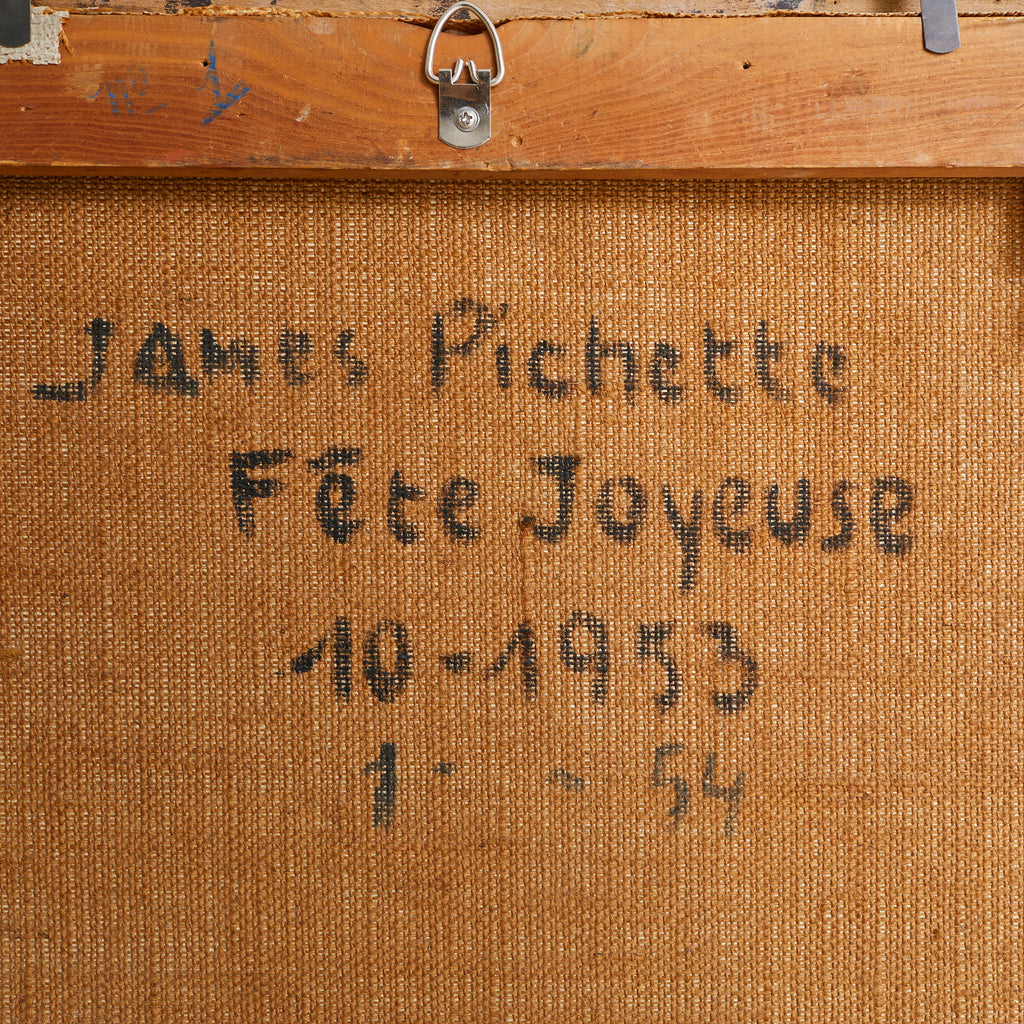 No 1
James Pichette
Fête Joyeuse
10-1953
1 - - 54